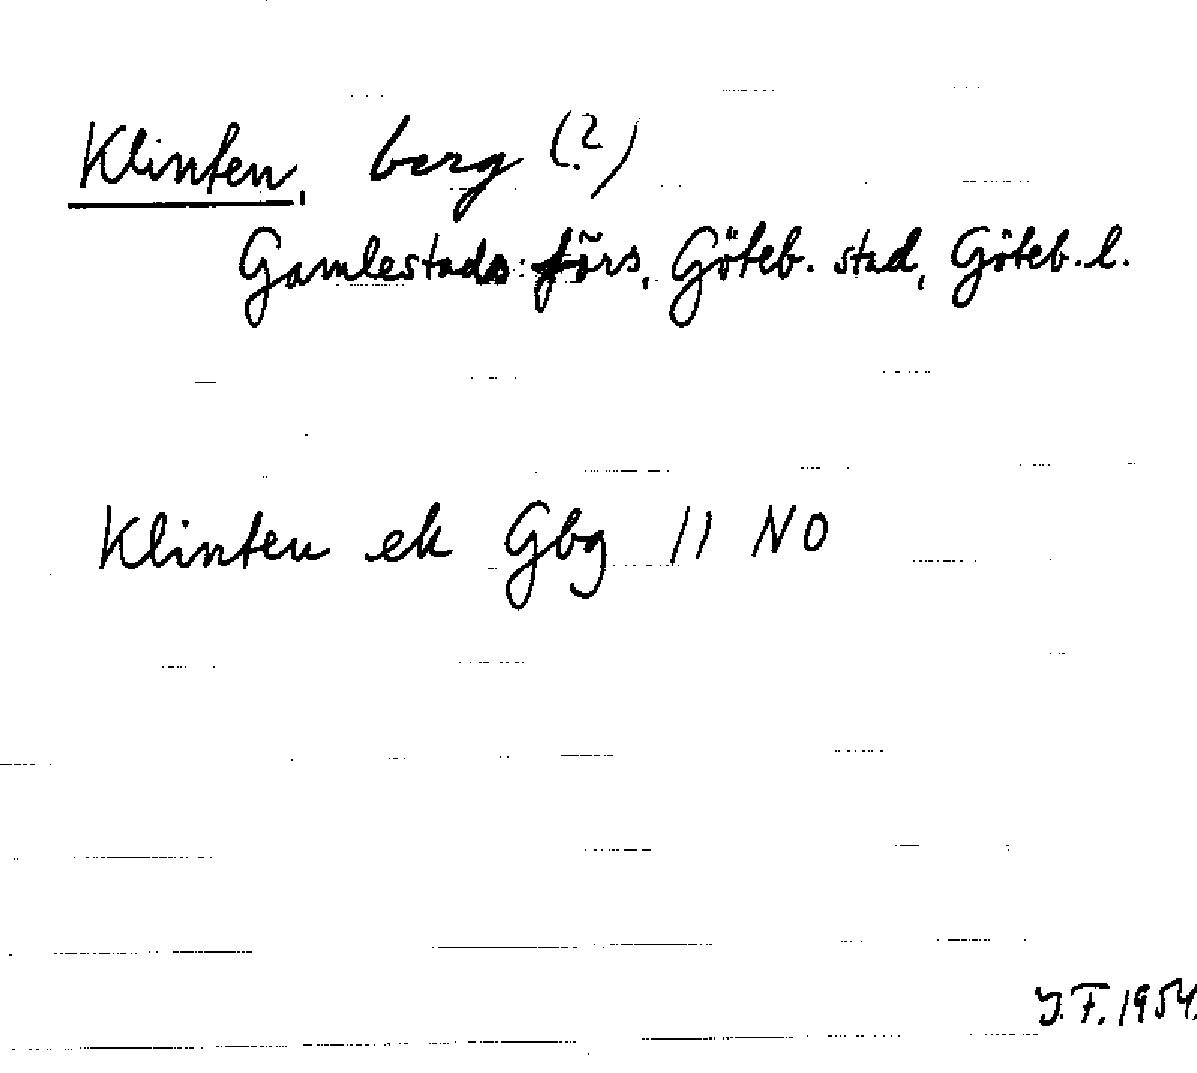 Klinten, berg (?)
Gamlestads förs, Göteb. stad, Göteb. l.
Klinten ek Gbg 11 NO
J.F. 1954.